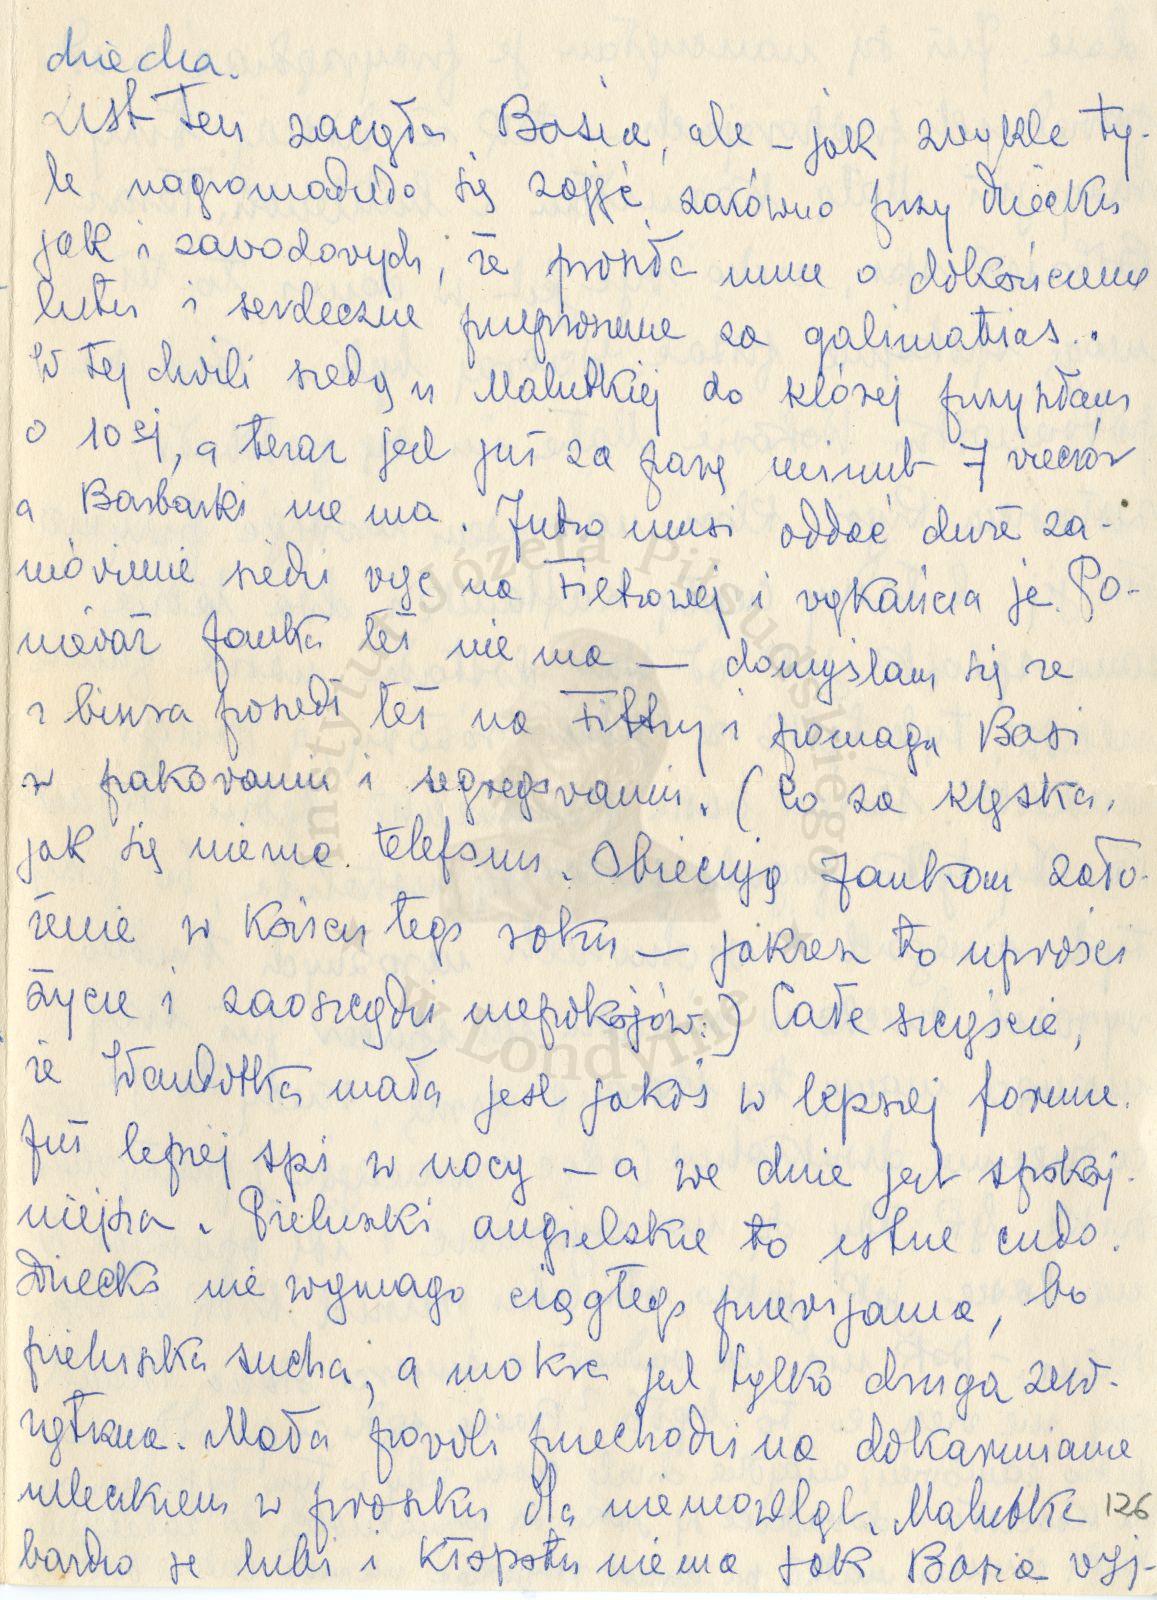 dziecka.
List ten zaczęła Basia, ale – jak zwykle ty-
le nagromadziło się zajęć zarówno przy dziecku
jak i zawodowych, że prosiła mnie o dokończenie
listu i serdeczne przeproszenie za galimatias..
W tej chwili siedzę u Malutkiej do której przyszłam
o 10ej, a teraz jest już za parę minut 7 wieczór
a Barbarki nie ma. Jutro musi oddać duże za-
mówienie siedzi więc na Filtrowej i wykańcza je. Po-
nieważ Janka też nie ma — domyślam się że
z biura poszedł też na Filtry i pomaga Basi
w pakowaniu i segregowaniu. (Co za klęska,
jak się niema telefonu. Obiecują Jankom zało-
żenie w końcu tego roku — jakże to uprości
życie i zaoszczędzi niepokojów.) Całe szczęście,
że Wandotka mała jest jakoś w lepszej formie.
Już lepiej śpi w nocy – a we dnie jest spokoj-
niejsza. Pieluszki angielskie to istne cudo.
Dziecko nie wymaga ciągłego przewijania, bo
pieluszka sucha, a mokra jest tylko druga zew-
nętrzna. Mała powoli przechodzi na dokarmianie
mleczkiem w proszku dla niemowląt. Malutka
bardzo je lubi i kłopotu niema jak Basia wyj-
126
Instytut Józefa Piłsudskiego
w Londynie